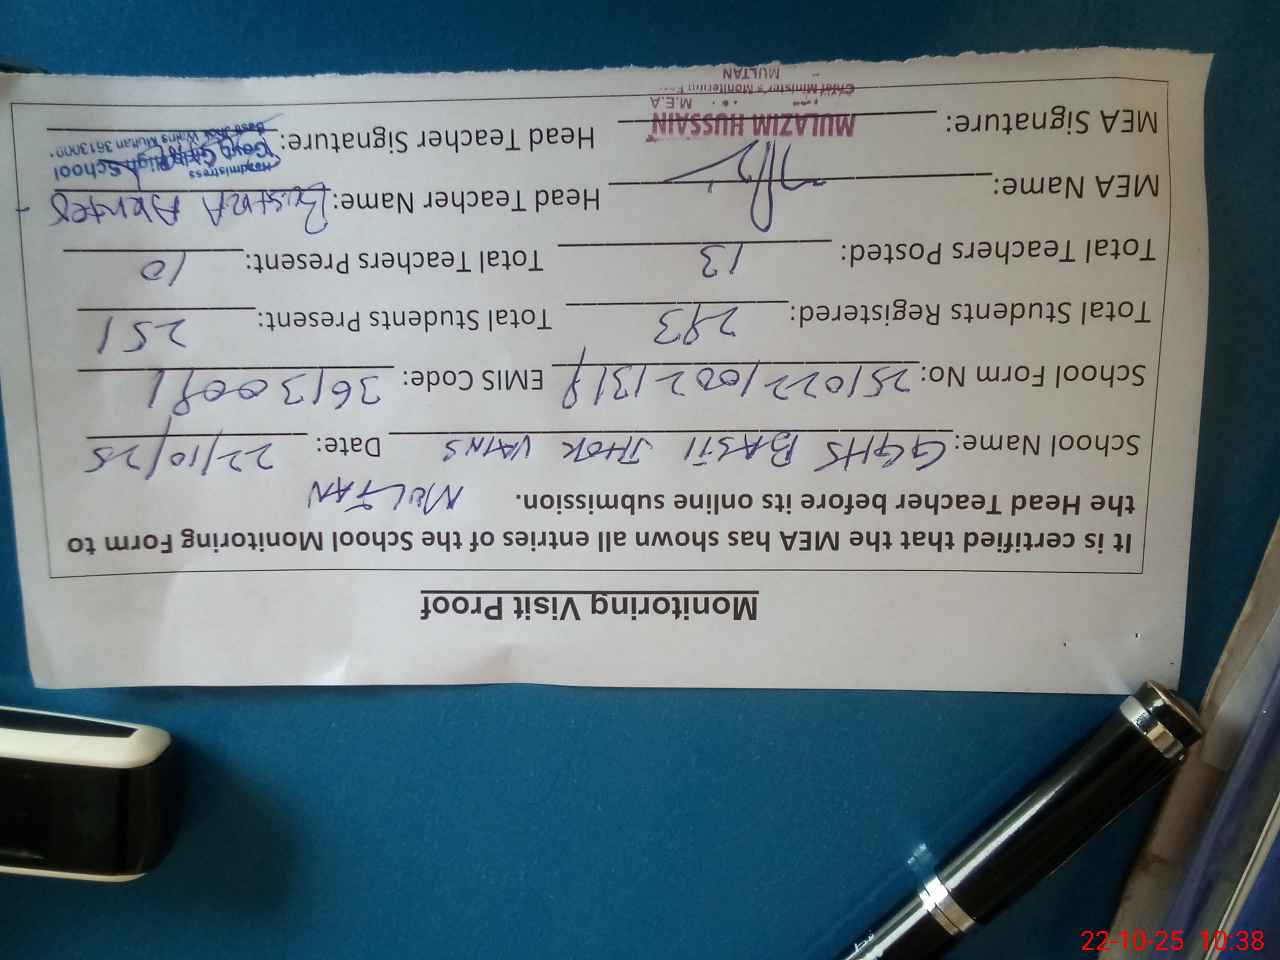 Monitoring Visit Proof
It is certified that the MEA has shown all entries of the School Monitoring Form to
the Head Teacher before its online submission. MULTAN
School Name: GGHS BASTI JHOK VAINS Date: 22/10/25
School Form No: EMIS Code:
Total Students Registered: 293 Total Students Present: 251
Total Teachers Posted: 13 Total Teachers Present: 10
MEA Name: Head Teacher Name: BUSHRA
Headmistress
MEA Signature: Head Teacher Signature:
Govt. Girls High School
MULAZIM HUSSAIN
M.E.A
Chief Minister's Monitoring
MULTAN
22-10-25 10:38